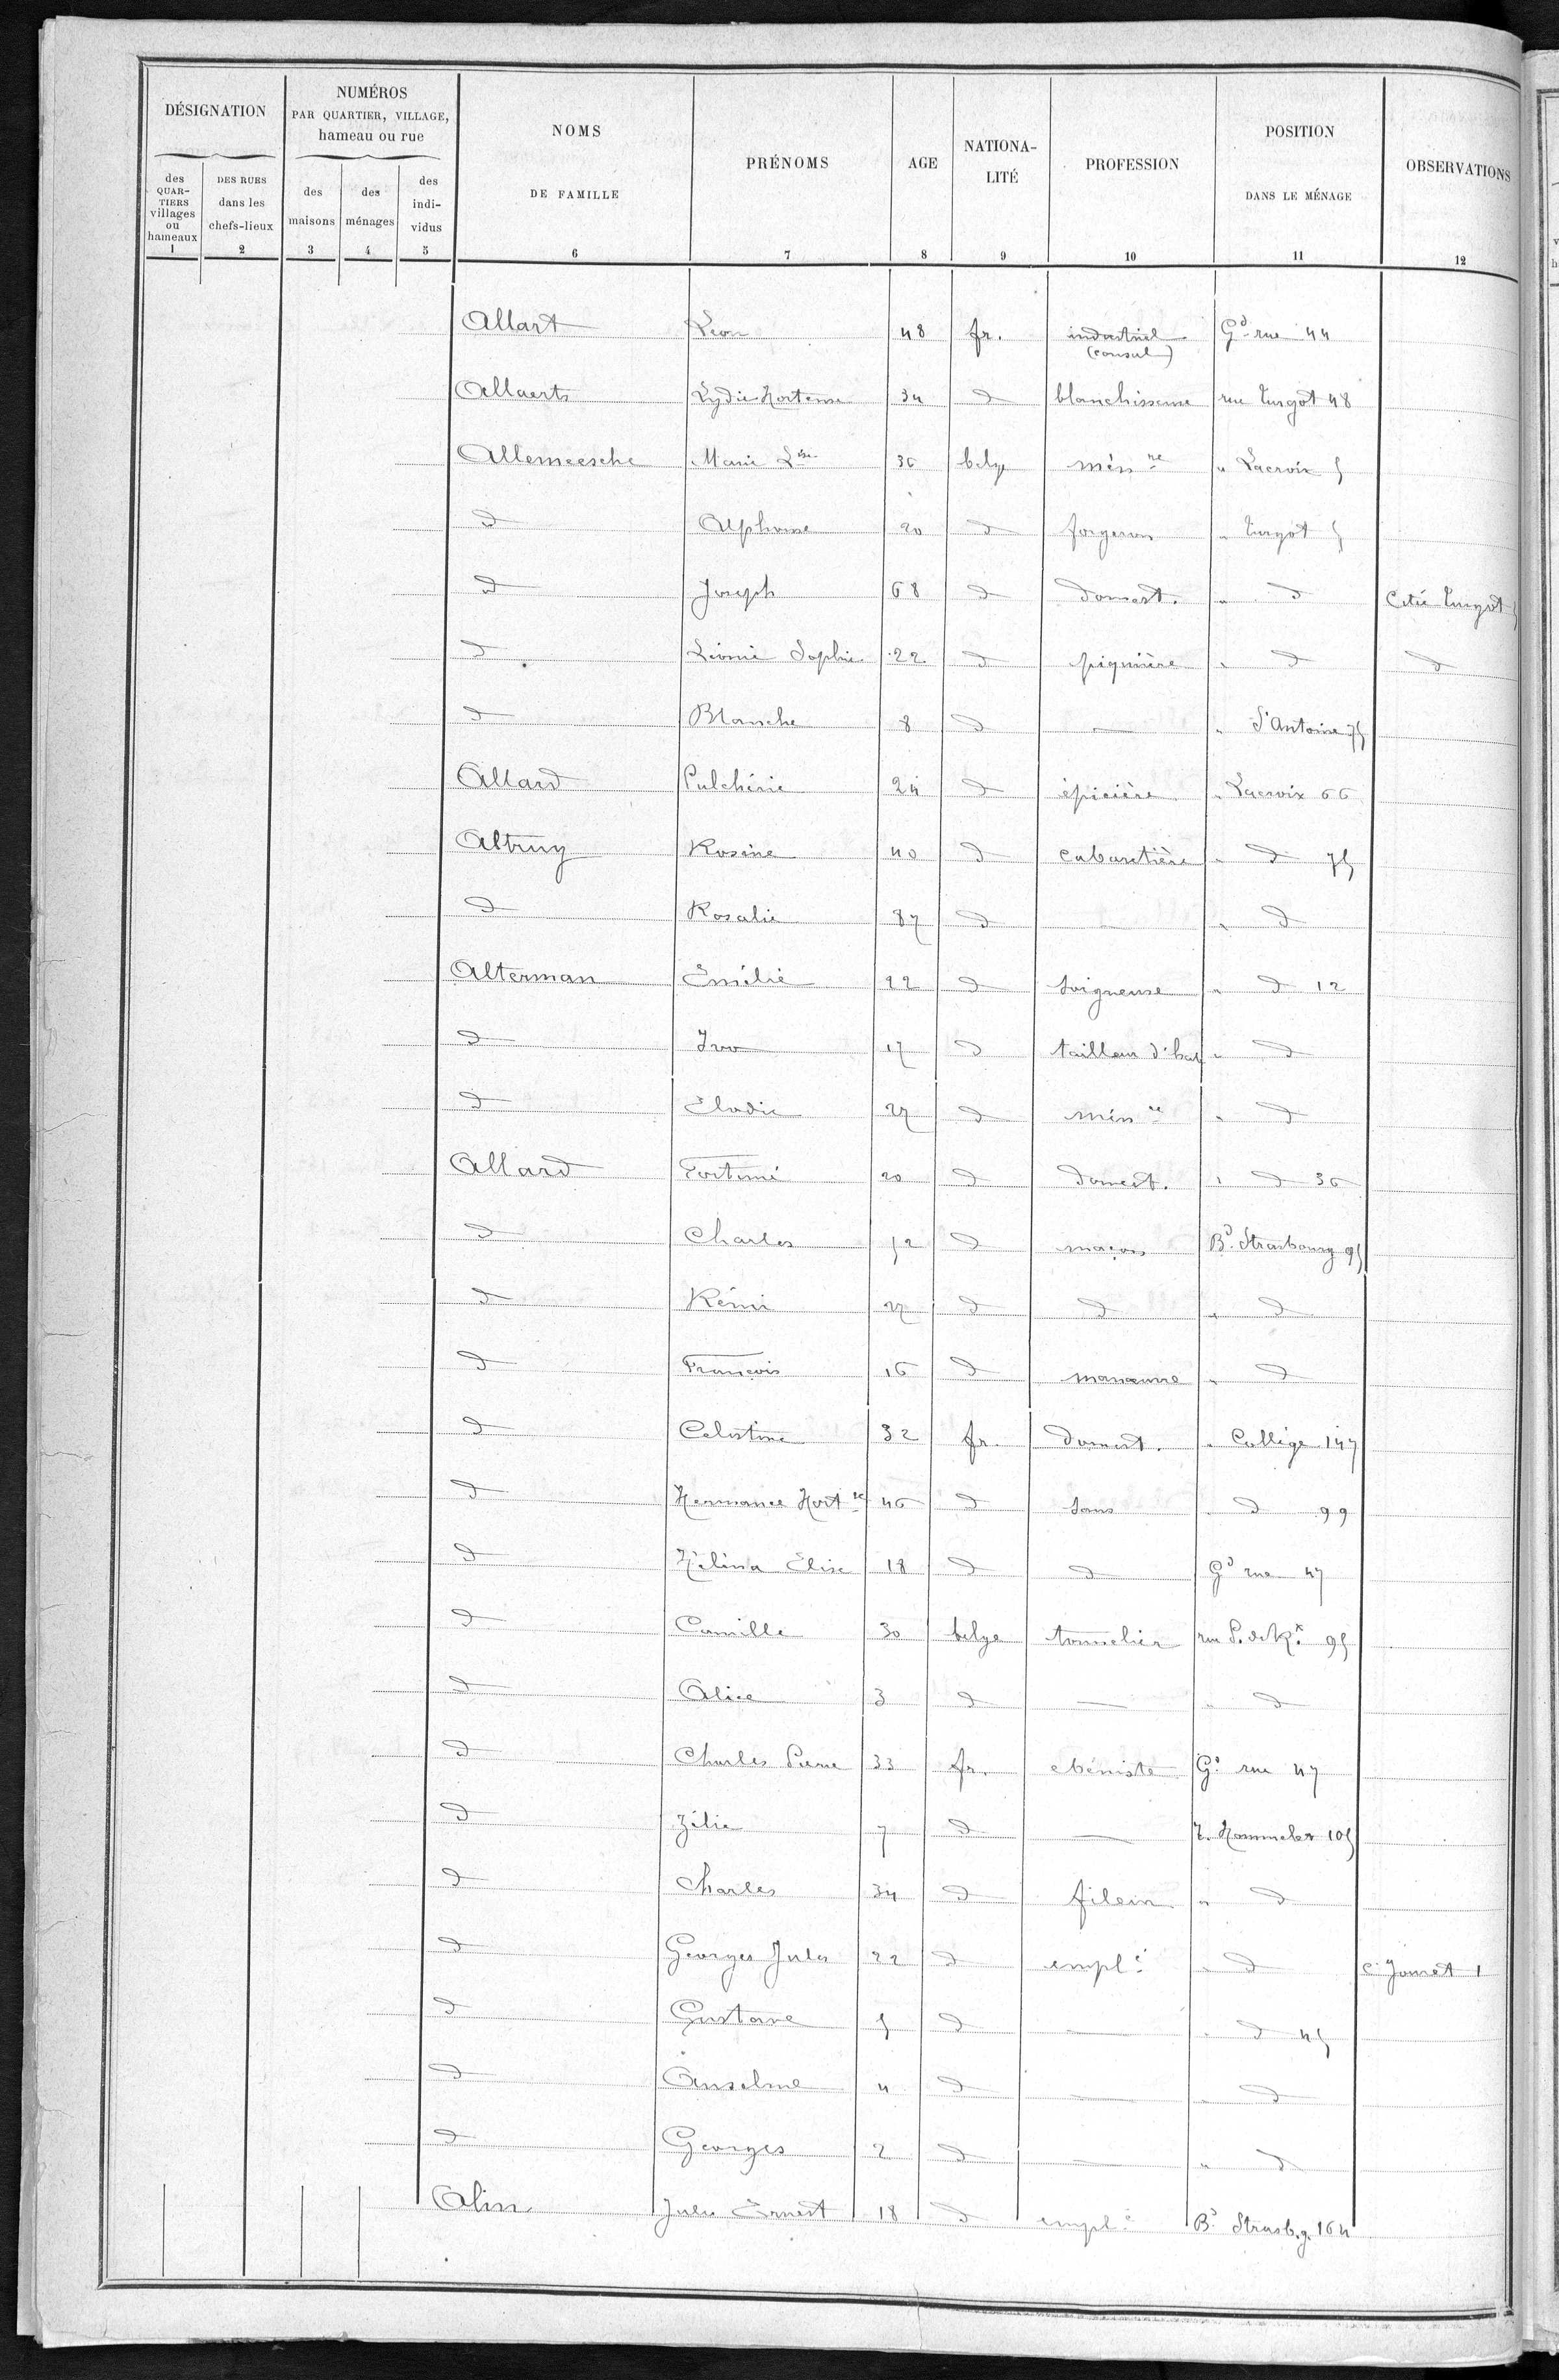 DÉSIGNATION
des QUARTIERS villages ou hameaux
1
DES RUES dans les chefs-lieux
2
NUMÉROS
PAR QUARTIER, VILLAGE,
hameau ou rue
des maisons
3
des ménages
4
des indi-vidus
5
NOMS
DE FAMILLE
6
PRÉNOMS
7
AGE
8
NATIONA-
LITÉ
9
PROFESSION
10
POSITION
DANS LE MÉNAGE
11
OBSERVATIONS
12
Allart Léon 48 fr. industriel (consul) Gd rue 44
Allaerts Lydie Hortense 34 d blanchisseuse rue Turgot 48
Allemeesche Marie Lise 36 belge mén re " Lacroix 5
d Alphonse 20 d forgeron " Turgot 5
d Joseph 68 d domest. " d Cité Turgot 5
d Léonie Sophie 22 d piqurière " d d
d Blanche 8 d — " St Antoine 75
Allard Pulchérie 24 d épicière " Lacroix 66
Altruy Rosine 40 d cabaretière " d 75
d Rosalie 87 d — " d
Alterman Emélie 22 d soigneuse " d 12
d Ivo 17 d tailleur d'hab " d
d Elodie 27 d mén re " d
Allard Fortuné 20 d domest. " d 36
d Charles 52 d maçon Bd Strasbourg 95
d Rémi 27 d d " d
d François 16 d manœuvre " d
d Celestine 32 fr. domest. " Collège 147
d Hermance Hort se 46 d sans " d 99
d Hélèna Elise 18 d d Gd rue 47
d Camille 30 belge tonnelier rue P. de Rx 95
d Alice 3 d — " d
d Charles Pierre 33 fr. ebéniste Gd rue 47
d Zélie 7 d — r. Hommelet 105
d Charles 34 d fileur " d
d Georges Jules 22 d empl é " d c. Jouret 1
d Gustave 5 d — " d 45
d Anselme 4 d — " d
d Georges 2 d — " d
Alin Jules Ernest 18 d empl é Bd Strasb.g. 164